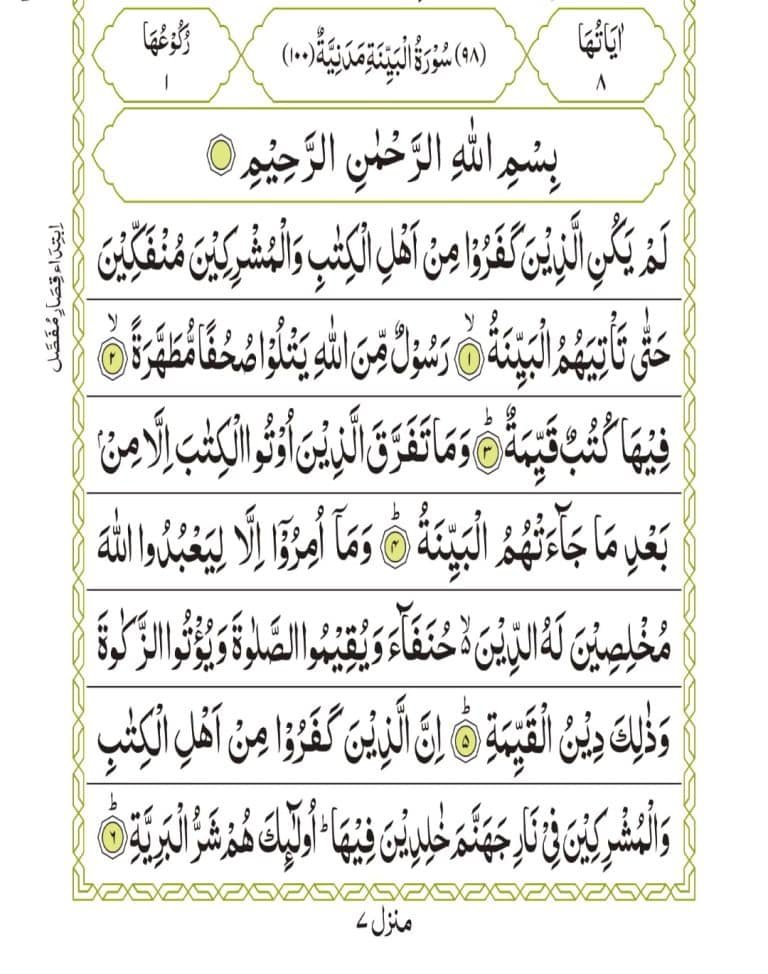 اٰيَاتُهَا ٨
(٩٨) سُوْرَةُ الْبَيِّنَةِ مَدَنِيَّةٌ (١٠٠)
رُكُوْعُهَا ١
بِسْمِ اللّٰهِ الرَّحْمٰنِ الرَّحِيْمِ
لَمْ يَكُنِ الَّذِيْنَ كَفَرُوْا مِنْ اَهْلِ الْكِتٰبِ وَالْمُشْرِكِيْنَ مُنْفَكِّيْنَ
حَتّٰى تَاْتِيَهُمُ الْبَيِّنَةُ ۙ﴿١﴾ رَسُوْلٌ مِّنَ اللّٰهِ يَتْلُوْا صُحُفًا مُّطَهَّرَةً ۙ﴿٢﴾
فِيْهَا كُتُبٌ قَيِّمَةٌ ؕ﴿٣﴾ وَمَا تَفَرَّقَ الَّذِيْنَ اُوْتُوا الْكِتٰبَ اِلَّا مِنْۢ
بَعْدِ مَا جَآءَتْهُمُ الْبَيِّنَةُ ؕ﴿٤﴾ وَمَآ اُمِرُوْٓا اِلَّا لِيَعْبُدُوا اللّٰهَ
مُخْلِصِيْنَ لَهُ الدِّيْنَ ۙ۬ حُنَفَآءَ وَيُقِيْمُوا الصَّلٰوةَ وَيُؤْتُوا الزَّكٰوةَ
وَذٰلِكَ دِيْنُ الْقَيِّمَةِ ؕ﴿٥﴾ اِنَّ الَّذِيْنَ كَفَرُوْا مِنْ اَهْلِ الْكِتٰبِ
وَالْمُشْرِكِيْنَ فِيْ نَارِ جَهَنَّمَ خٰلِدِيْنَ فِيْهَا ؕ اُولٰٓئِكَ هُمْ شَرُّ الْبَرِيَّةِ ؕ﴿٦﴾
اِبْتِدَاءِ قِصَارِ مُفَصَّل
منزل ٧